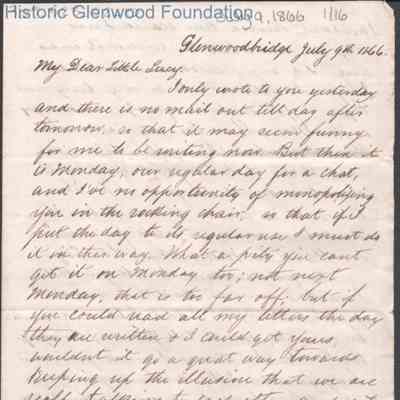 Historic Glenwood Foundation
July 9, 1866 1/16
Glenwoodbridge July 9th 1866.
My Dear Little Lucy.
I only wrote to you yesterday
and there is no mail out till day after
tomorrow, so that it may seem funny
for me to be writing now. But then it
is Monday, our regular day for a chat,
and I've no opportunity of monopolizing
you in the rocking chair, so that if I
put the day to its regular use I must do
it in this way. What a pity you can't
get it on Monday too; not next
Monday, that is too far off, but if
you could read all my letters the day
they are written & I could get yours
wouldn't it go a great way towards
keeping up the illusion that we are
really talking to each other